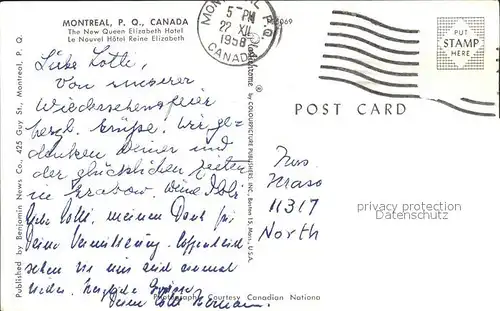 MONTREAL, P. Q., CANADA
The New Queen Elizabeth Hotel
Le Nouvel Hôtel Reine Elizabeth
MONTREAL P.Q.
5 PM
22 XII
1958
CANADA
PUT
STAMP
HERE
POST CARD
Published by Benjamin News Co., 425 Guy St., Montreal, P. Q.
by COLOURPICTURE PUBLISHERS, INC., Boston 15, Mass., U.S.A.
Liebe Lotte,
Von unserer
Wiedersehensfeier
herzl. Grüße. Wir ge-
denken Deiner und
der glücklichen Zeiten
in Grabow. Deine
liebe Lotte, meinen Dank für
Deine Vermittlung. Hoffentlich
sehen wir uns auch einmal
wieder. Herzliche Grüsse
Deine Lotte
Mrs.
11317
North
privacy protection
Datenschutz
Photography Courtesy Canadian Nationa